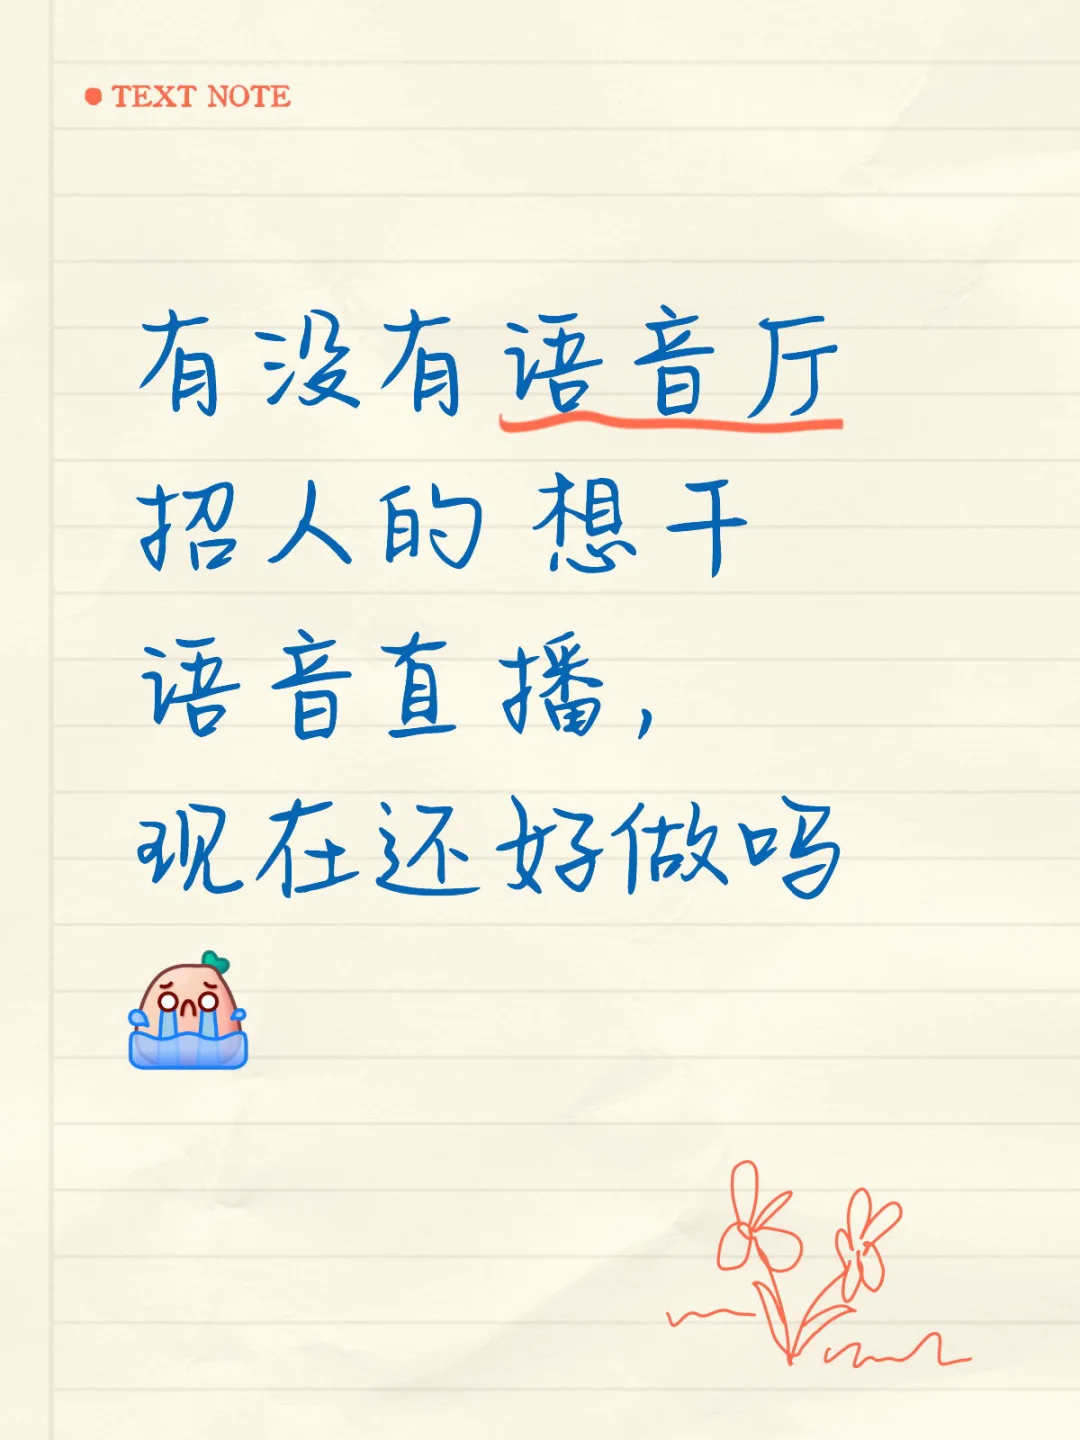 TEXT NOTE
有没有语音厅
招人的 想干
语音直播，
现在还好做吗